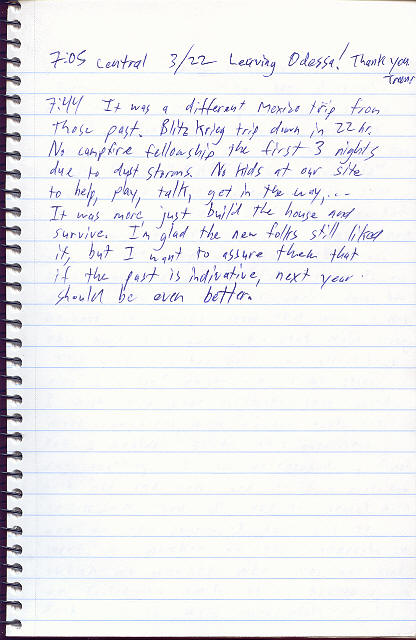 7:05 central 3/22 Leaving Odessa! Thank you
Travis
7:44 It was a different Mexico trip from
those past. Blitzkrieg trip down in 22 hr.
No campfire fellowship the first 3 nights
due to dust storms. No kids at our site
to help, play, talk, get in the way,...
It was more just build the house and
survive. I'm glad the new folks still liked
it, but I want to assure them that
if the past is indivative, next year
should be even better.